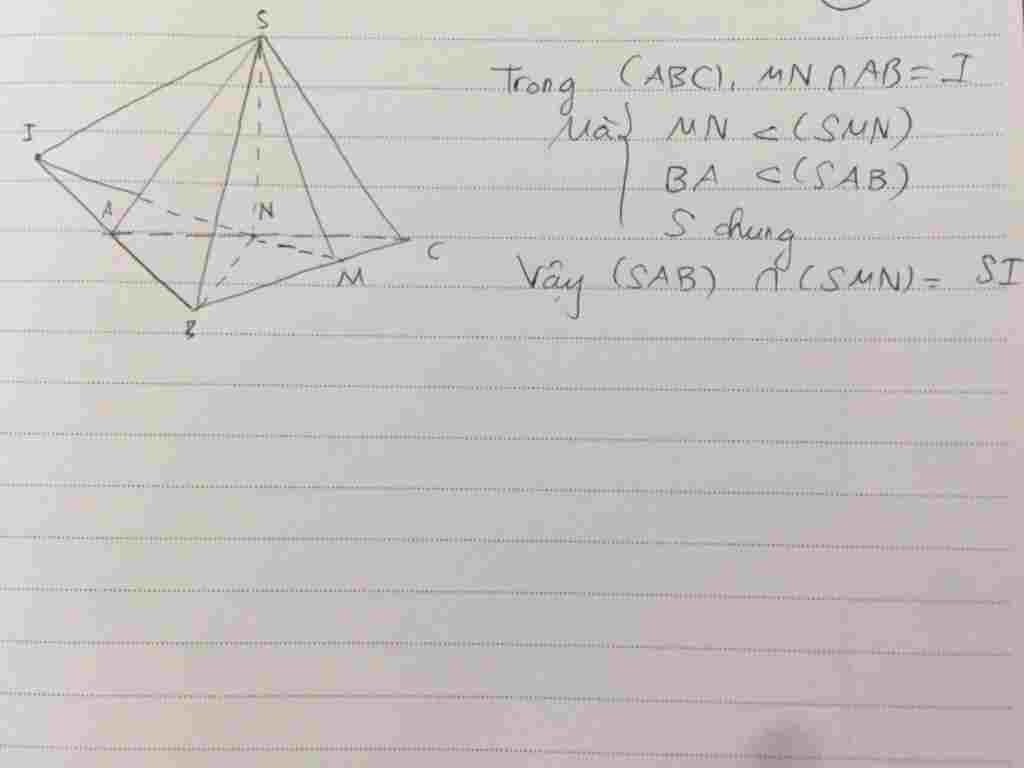 S
I
A
N
C
M
B
Trong (ABC), MN ∩ AB = I
Mà { MN ⊂ (SMN)
BA ⊂ (SAB)
S chung
Vậy (SAB) ∩ (SMN) = SI